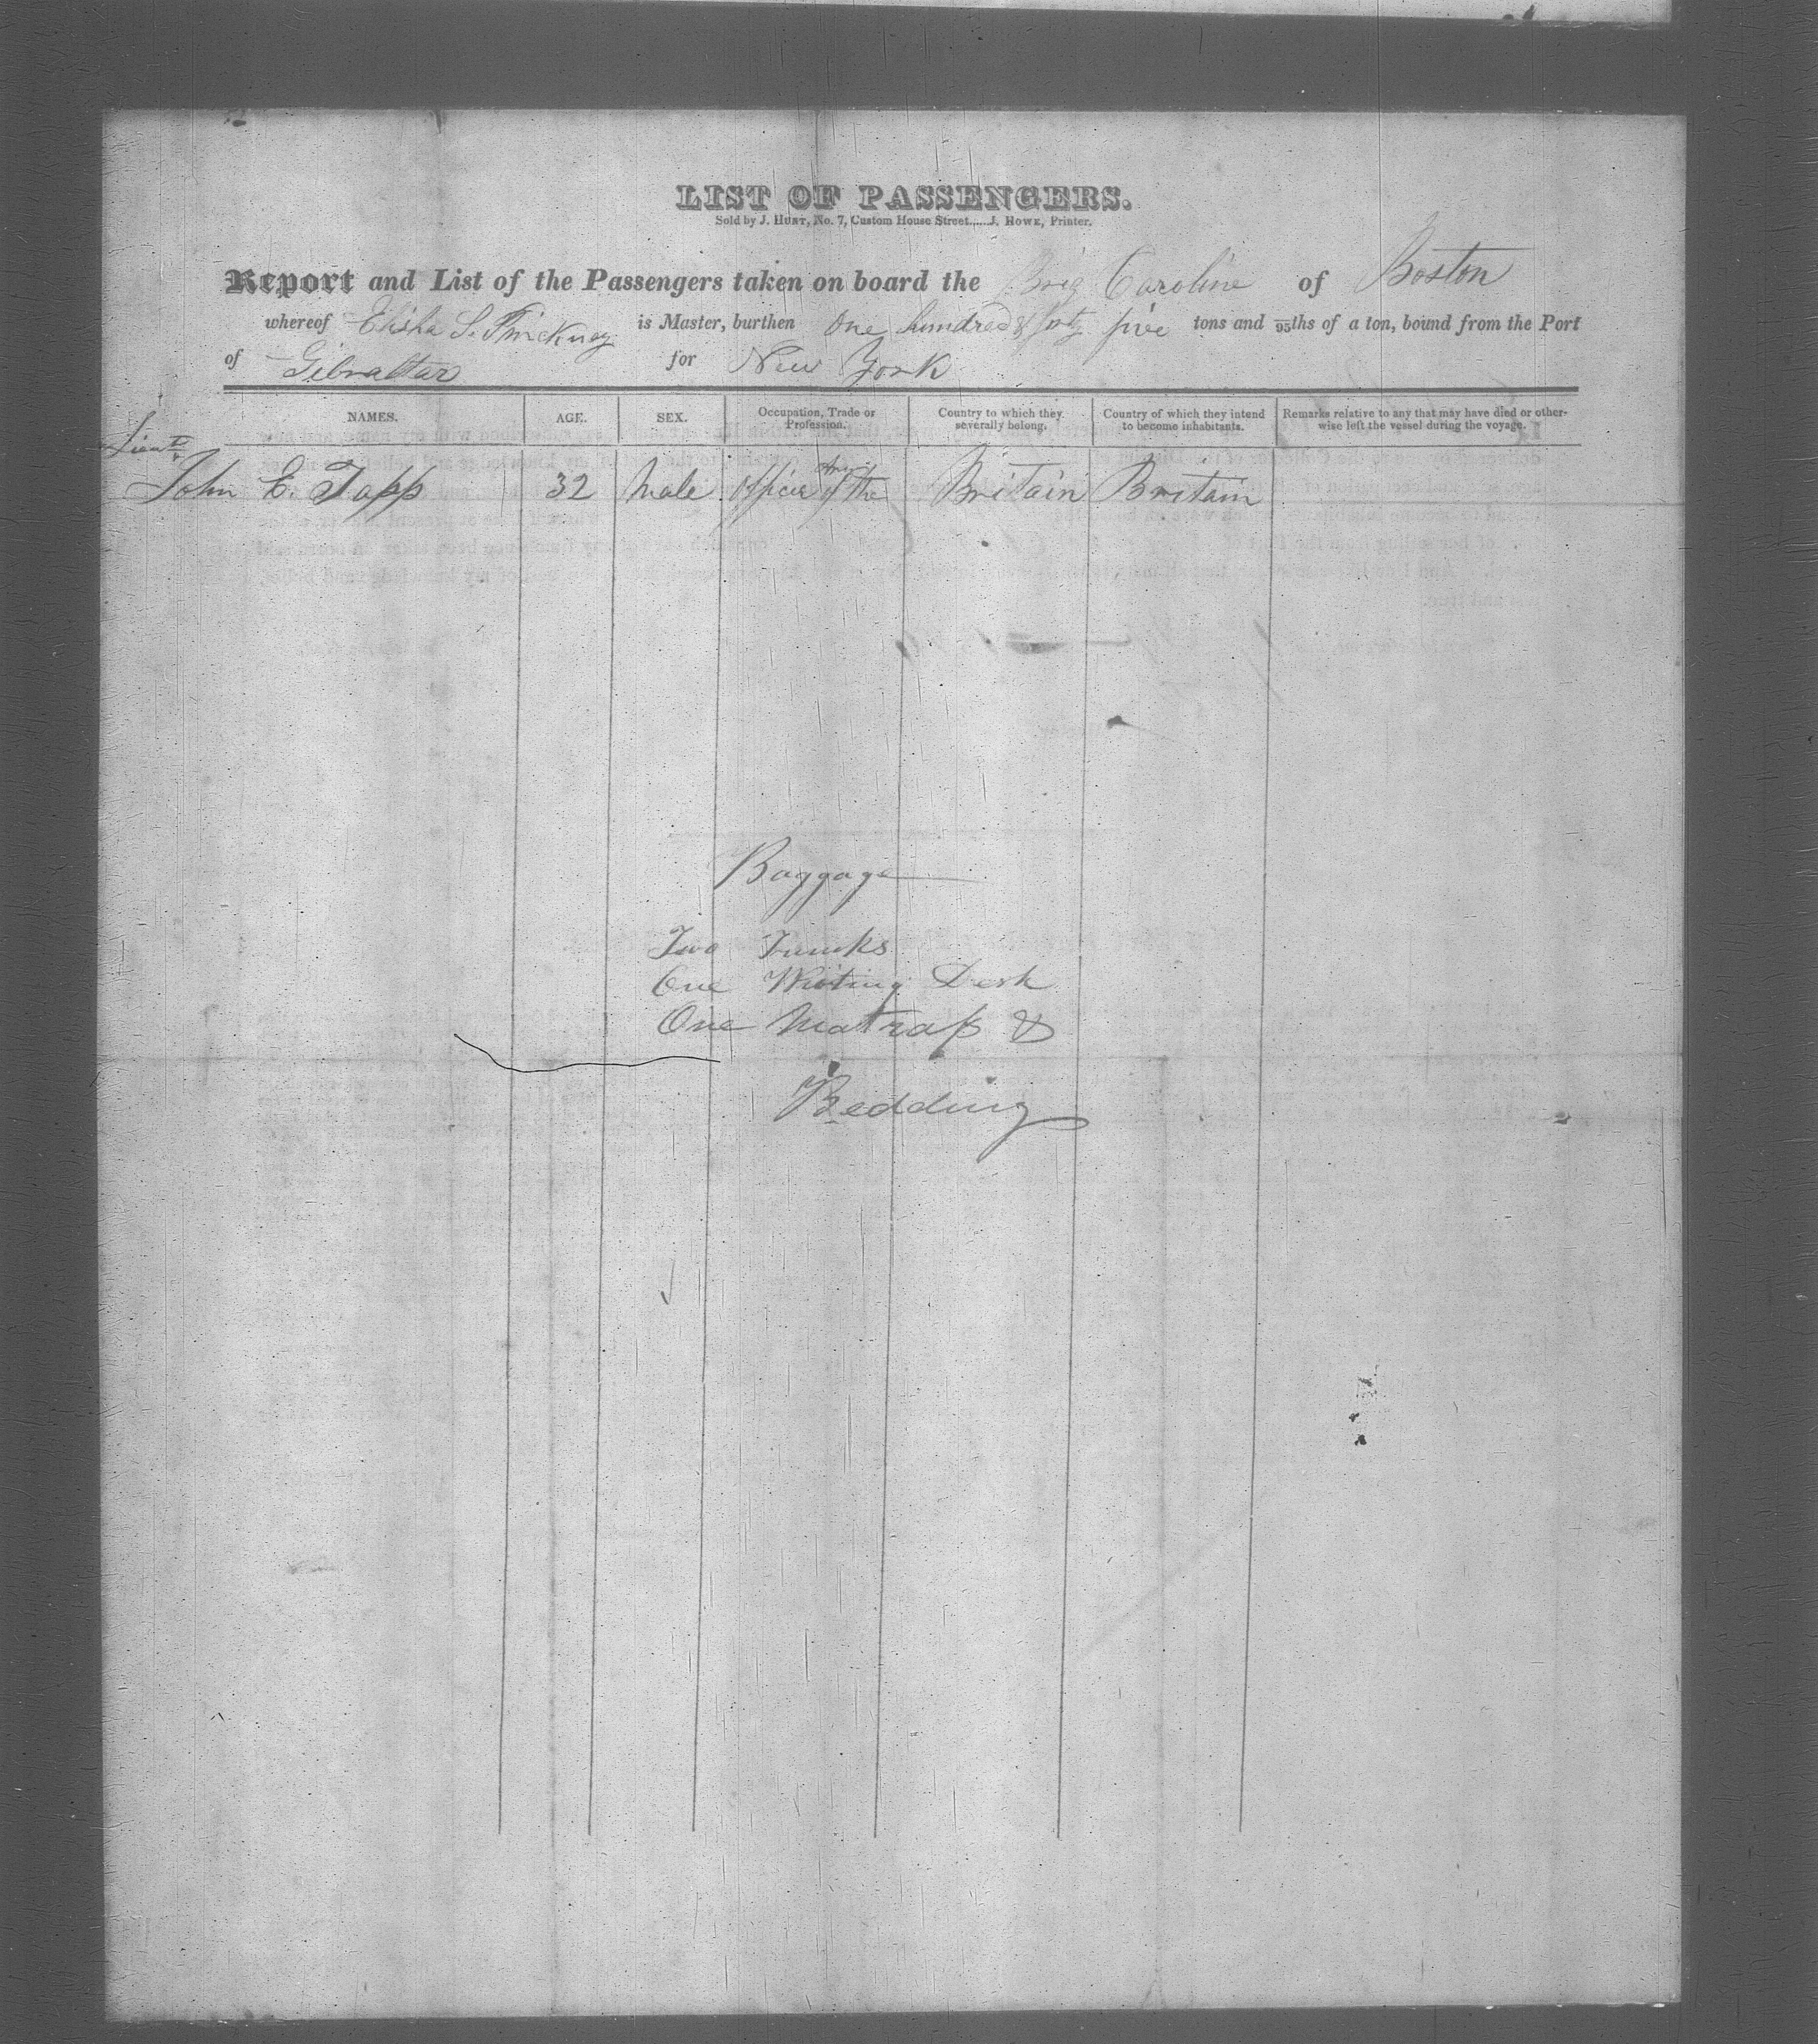 LIST OF PASSENGERS.
Sold by J. HUNT, No. 7, Custom House Street.....J. HOWE, Printer.
Report and List of the Passengers taken on board the Brig Caroline of Boston
whereof Elisha S. is Master, burthen One hundred & forty five tons and 95ths of a ton, bound from the Port
of Gibraltar for New York
NAMES. AGE. SEX. Occupation, Trade or Profession. Country to which they severally belong. Country of which they intend to become inhabitants. Remarks relative to any that may have died or otherwise left the vessel during the voyage.
Lieut
John E. Tapp 32 Male Officer of the Army Britain Britain
Baggage
Two Trunks
One Writing Desk
One Matrass &
Bedding